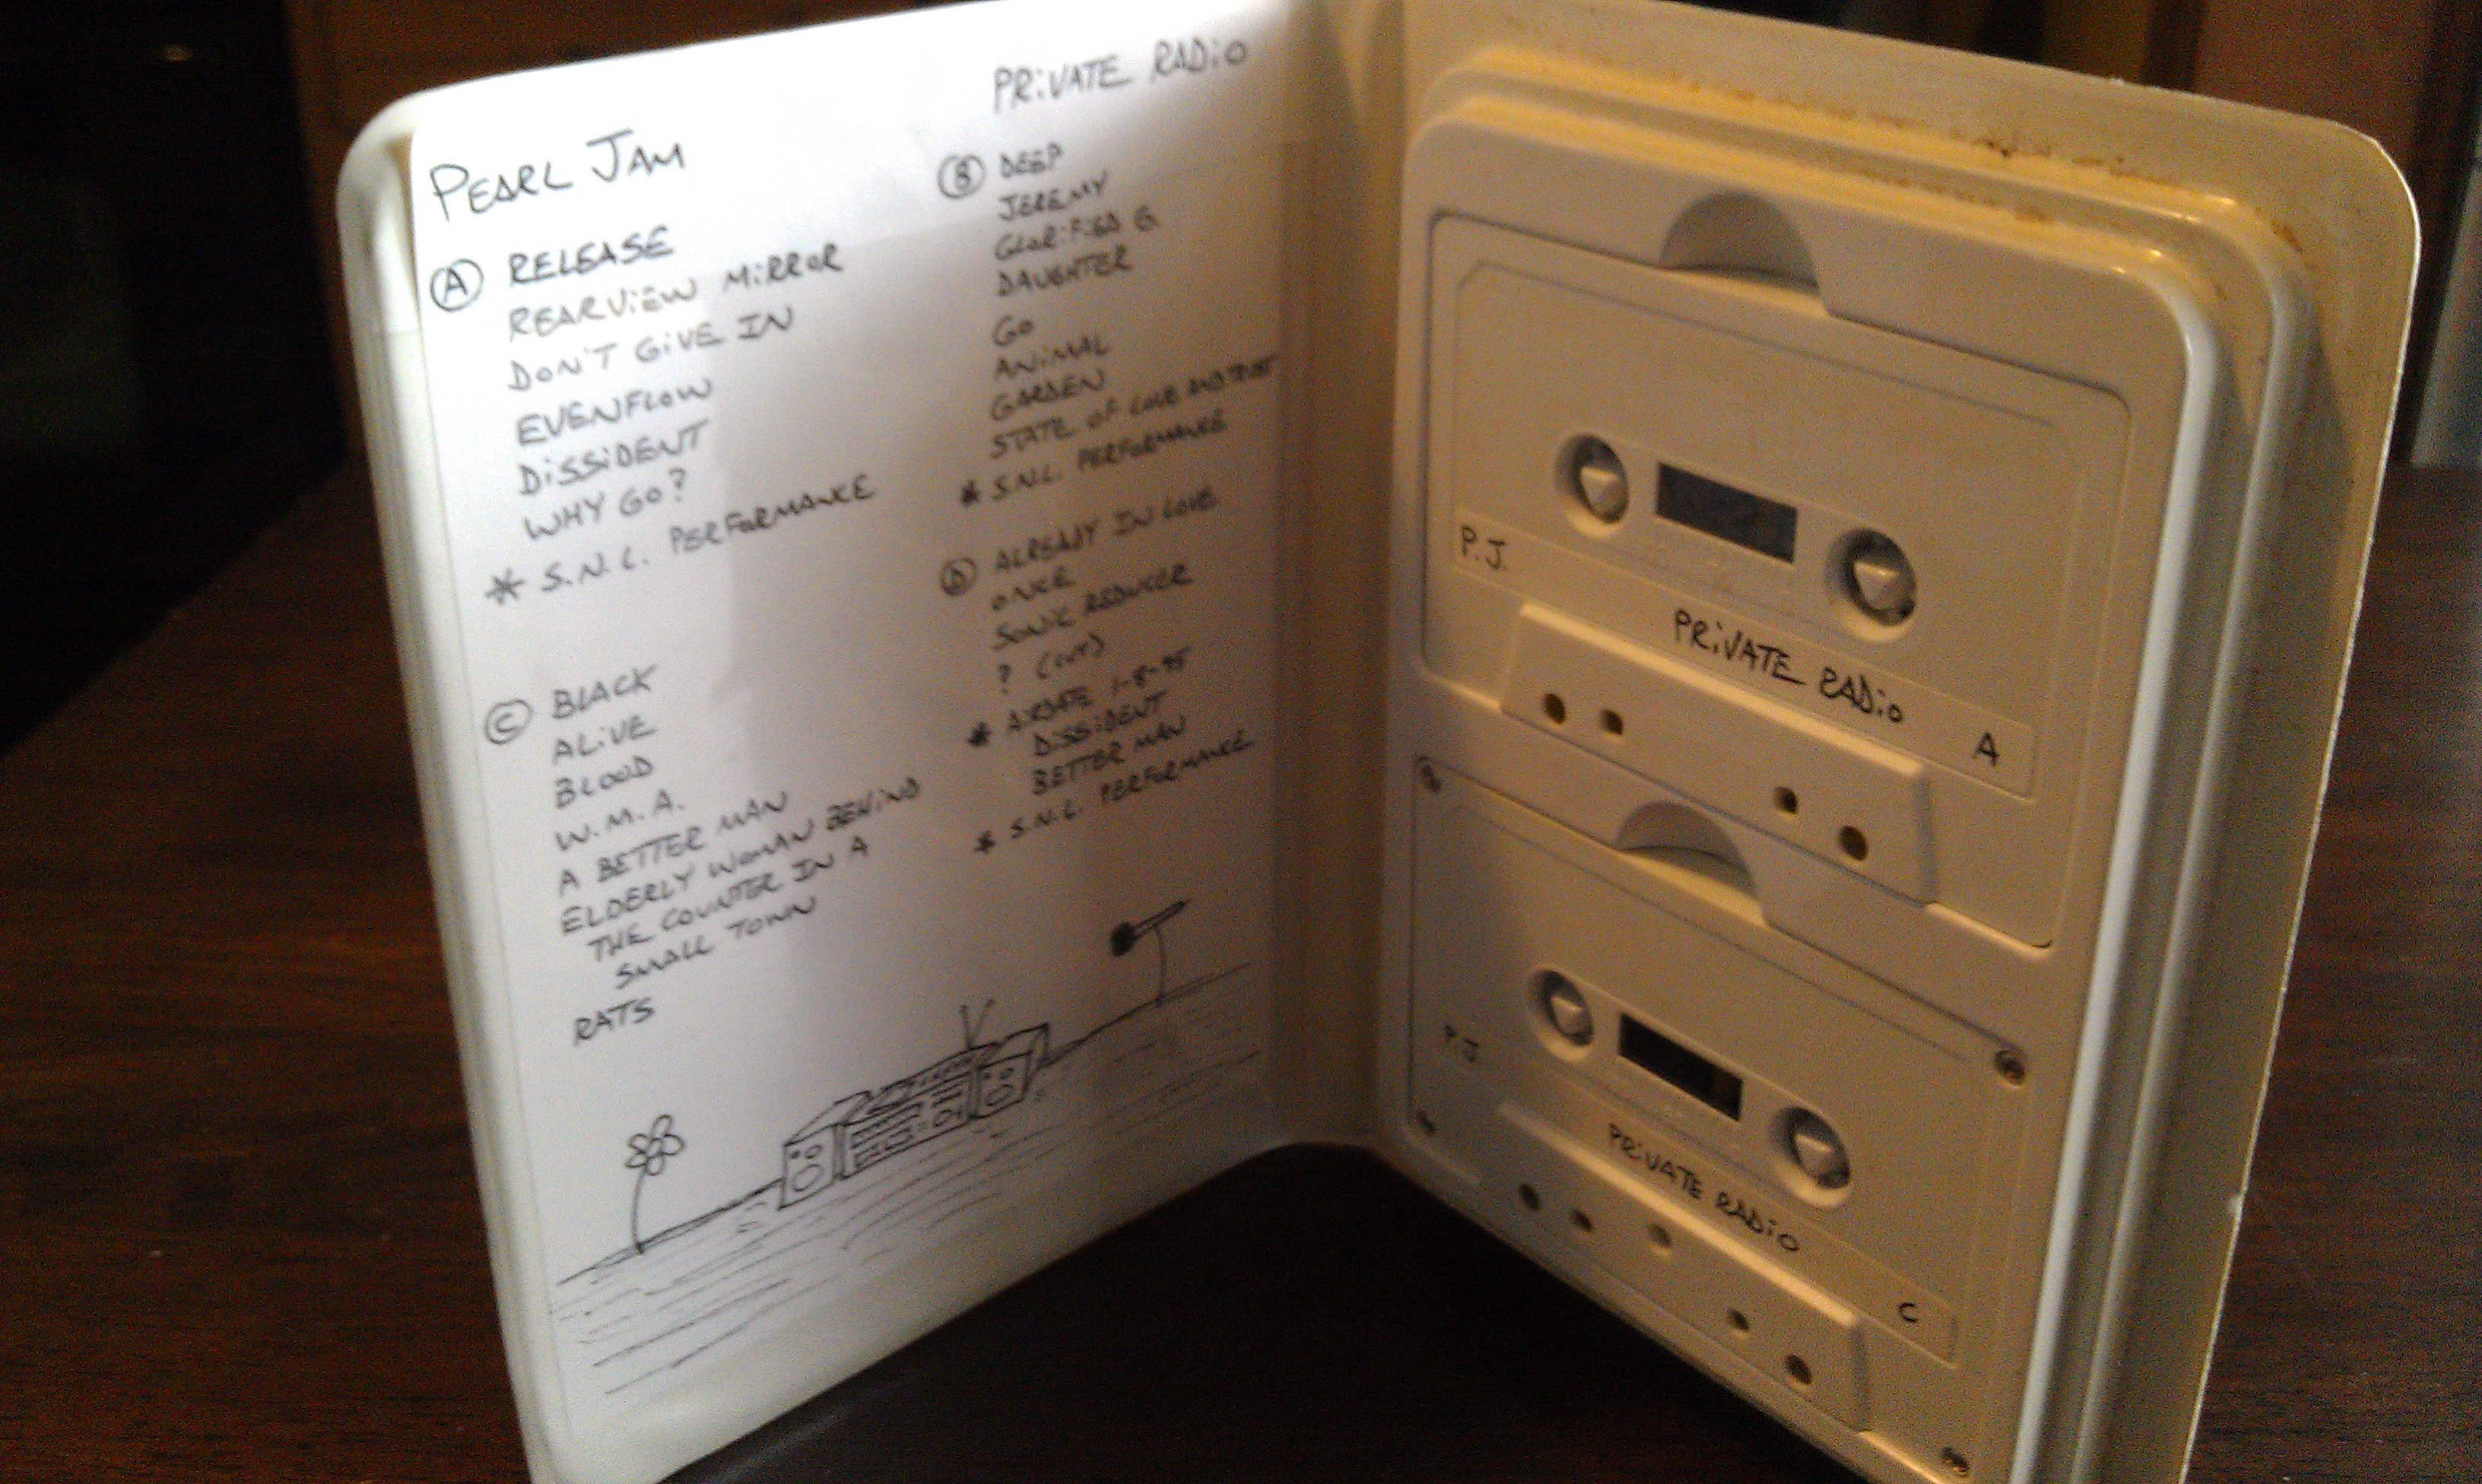 PEARL JAM
PRIVATE RADIO
A RELEASE
REARVIEW MIRROR
DON'T GIVE IN
EVENFLOW
DISSIDENT
WHY GO?
* S.N.L. PERFORMANCE
B DEEP
JEREMY
GLORIFIED G
DAUGHTER
GO
ANIMAL
GARDEN
STATE OF LOVE AND TRUST
* S.N.L. PERFORMANCE
C BLACK
ALIVE
BLOOD
W.M.A.
A BETTER MAN
ELDERLY WOMAN BEHIND
THE COUNTER IN A
SMALL TOWN
RATS
D ALREADY IN LOVE
ONCE
SONIC REDUCER
? (CUT)
* AIRDATE 1-8-95
DISSIDENT
BETTER MAN
* S.N.L. PERFORMANCE
P.J.
PRIVATE RADIO
A
P.J.
PRIVATE RADIO
C